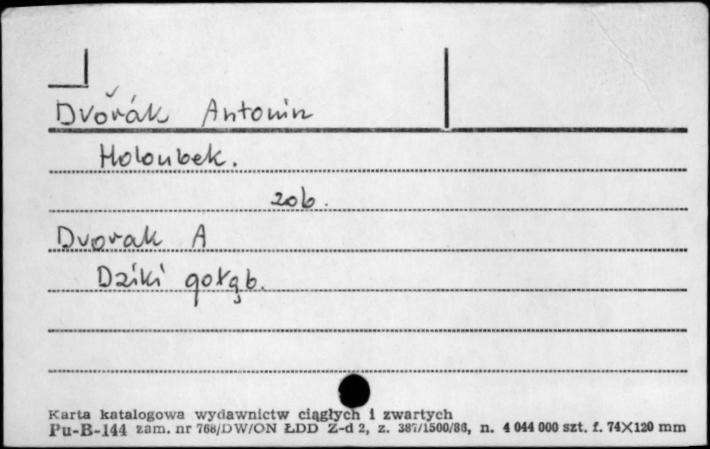 Dvořák Antonin
Holoubek.
zob.
Dvorak A
Dziki gołąb.
Karta katalogowa wydawnictw ciągłych i zwartych
Pu-B-144 zam. nr 768/DW/ON ŁDD Z-d 2, z. 387/1500/86, n. 4 044 000 szt. f. 74X120 mm